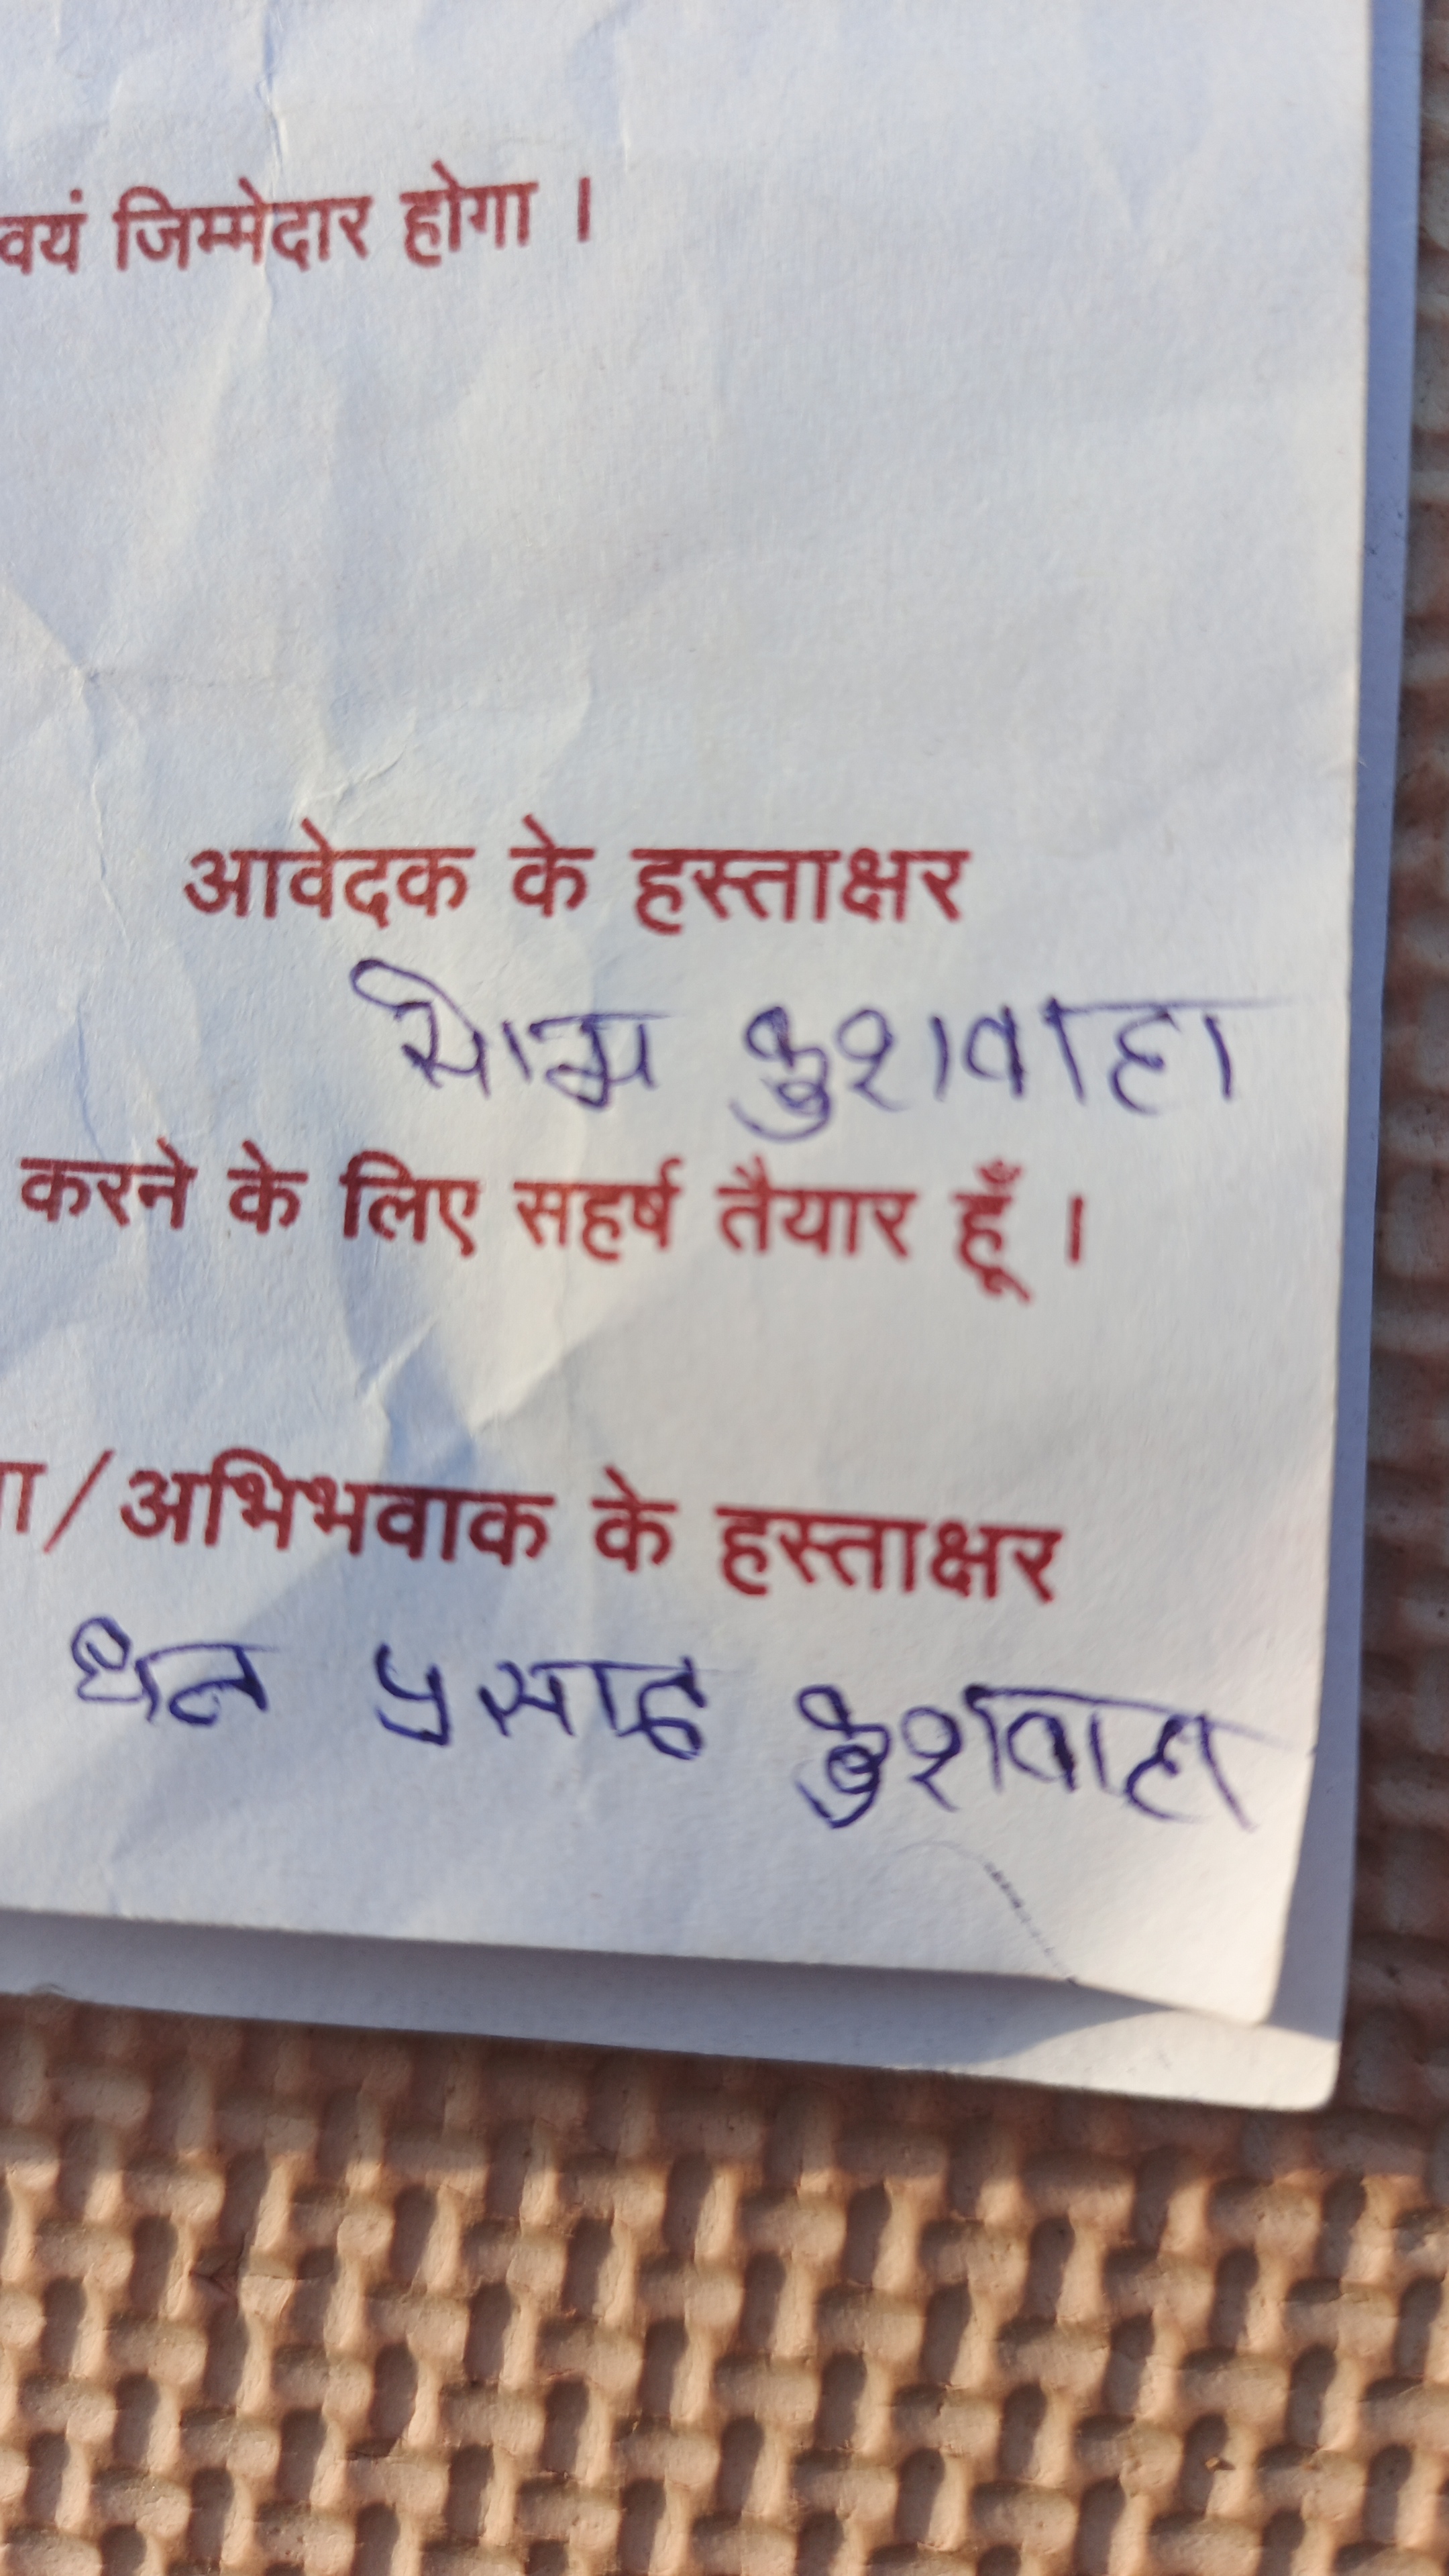 वयं जिम्मेदार होगा ।
आवेदक के हस्ताक्षर
कुशवाहा
करने के लिए सहर्ष तैयार हूँ ।
ा/अभिभवाक के हस्ताक्षर
धन प्रसाद कुशवाहा